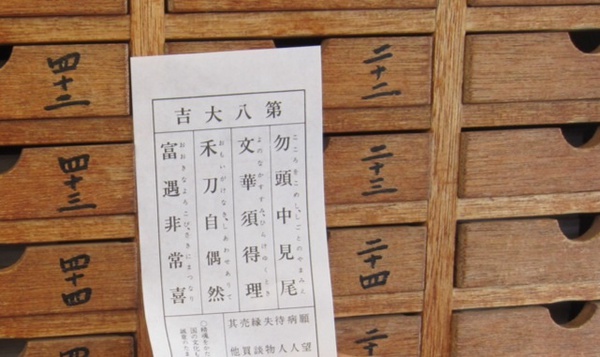 四十二
四十三
四十四
第八大吉
勿頭中見尾
こころをこめし、しごとのやまみえ
文華須得理
よのなかすすみ、ひらけゆくとき
禾刀自偶然
おもいがけなき、しあわせありて
富遇非常喜
おおきなよろこび、さきにまつなり
願望
病人
待人
失物
縁談
売買
其他
二十二
二十三
二十四